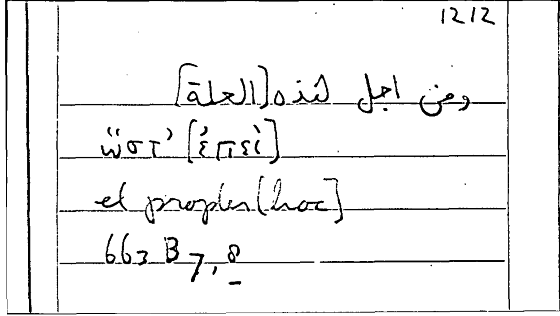 1212
ومن اجل هذه [العلة]
ὥστ' [ἐπεὶ]
et propter [hoc]
663 B 7, 8